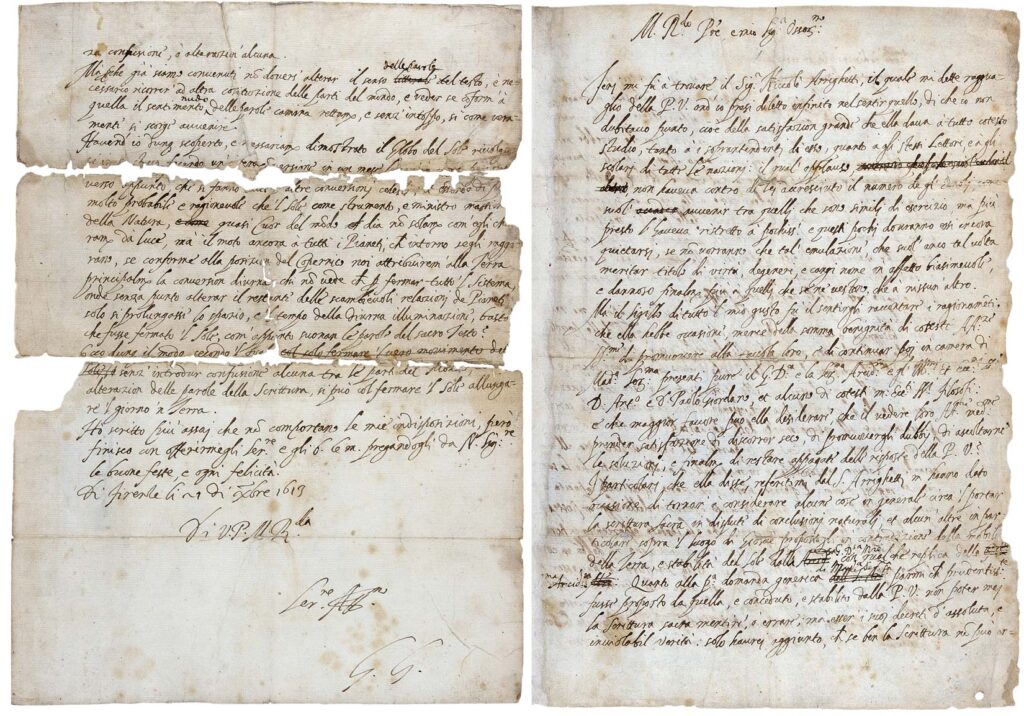 za confusione, o alterazion' alcuna.
delle parole
Mà che già siamo convenuti nō doversi alterar il senso del testo, è ne-
cessario ricorrer ad altra costituzione delle parti del mondo, e veder se cōforme à
quella il sentimento nudo delle parole camina rettamte, e senz' intoppo, si come vera-
menti si scorge avvenire.
Havend' io dunq scoperto, e necessariamte dimostrato il Globo del Sole rivolgersi
verso appunto che si fanno altre conversioni celesti,
molto probabile e ragionevole che 'l Sole come strumento, e ministro massimo
della Natura, quasi Cuor del mondo dia nō solamte com'egli chia-
ramte dà luce, ma il moto ancora à tutti i Pianeti, ch' intorno segli raggi-
rano, se conforme alla posizion del Copernico noi attribuirem alla Terra
principalmte la conversion diurna, chi nō vede ch p fermar tutto 'l Sistema,
onde senza punto alterar il restante delle scambievoli relazioni de Pianeti
solo si prolungasse lo spazio, e 'l tempo della diurna illuminazione, bastò
che fusse fermato 'l Sole, com' appunto suonan le parole del sacro Testo?
Ecco dunq il modo secondo 'l
senz' introdur confusione alcuna tra le parti del Mondo
alterazion delle parole della Scrittura, si può col fermar il Sole allunga-
re 'l giorno in Terra.
Ho scritto più assai che nō comportano le mie indisposizioni, però
finisco con offerirmegli serre e gli b. le m. pregandogli da N. Sigre
le buone feste, e ogni felicità.
Di Firenze li 21 di Xbre 1613
Di V. P. M. Rda
Serre Affmo
G. G.
M. Rdo Pre e mio Sigr Osservmo
Ieri mi fù à trovare il Sigr Niccolò Arrighetti, il quale mi dette raggua-
glio della P. V. ond' io presi diletto infinito nel sentir quello, di che io non
dubitavo punto, cioè della satisfazion grande che ella dava à tutto cotesto
studio, tanto à i soprantendenti di esso, quanto a gli stessi Lettori, e agli
scolari di tutte le nazioni: il qual' applauso
non haveva contro di lei accresciuto il numero de gl' emoli, come
suole avvenir tra quelli che sono simili di esercizio ma più
presto l' haveva ristretto à pochiss: e questi pochi dovranno essi ancora
quietarsi, se nō vorranno che tal' emulazione, che suole anco tal volta
meritar titolo di virtù, degeneri, e cangi nome in affetto biasimevole
e dannoso finalmte più à quelli che se ne vestono, che à nissun' altro.
Mà il sigillo di tutto 'l mio gusto fù il sentirgli raccontar i ragionamti
che ella hebbe occasione, mercè della somma benignità di coteste AAze
SSme di promuovere alla tavola loro, e di continuar poi in camera di
Mada Serma presenti pure il G. D. e la Serma Arcid: e gl' Illmi et eccmi SS
D. Anto e D. Paolo Giordano, et alcuni di cotesti molto ecc: Filosofi.
e che maggior favore può ella desiderare che il vedere loro AA. medme
prender satisfazione di discorrer seco, di promuovergli dubbi, di ascoltarne
le soluzioni, e finalmte di restare appagati delle risposte della P. V?
I particolari, che ella disse, referitimi dal S. Arrighetti, m' hanno dato
occasione di tornar à considerare alcune cose in generale circa 'l portar
la scrittura sacra in dispute di conclusioni naturali, et alcun' altre in par-
ticolare sopra 'l luogo di Giosuè propostoli in contradizione della mobilità
della Terra, e stabilità del Sole dalla G. Da Madre con qualche replica della
Serma Arcida. Quanto alla pa domanda generica parmi ch prudentissm
fusse proposto da quella, e conceduto, e stabilito dalla P. V. non poter mai
la Scrittura sacra mentire, o errare, ma esser i suoi decreti d' assoluta, e
inviolabil verità: solo haverei aggiunto, ch se ben la Scrittura nō può er-